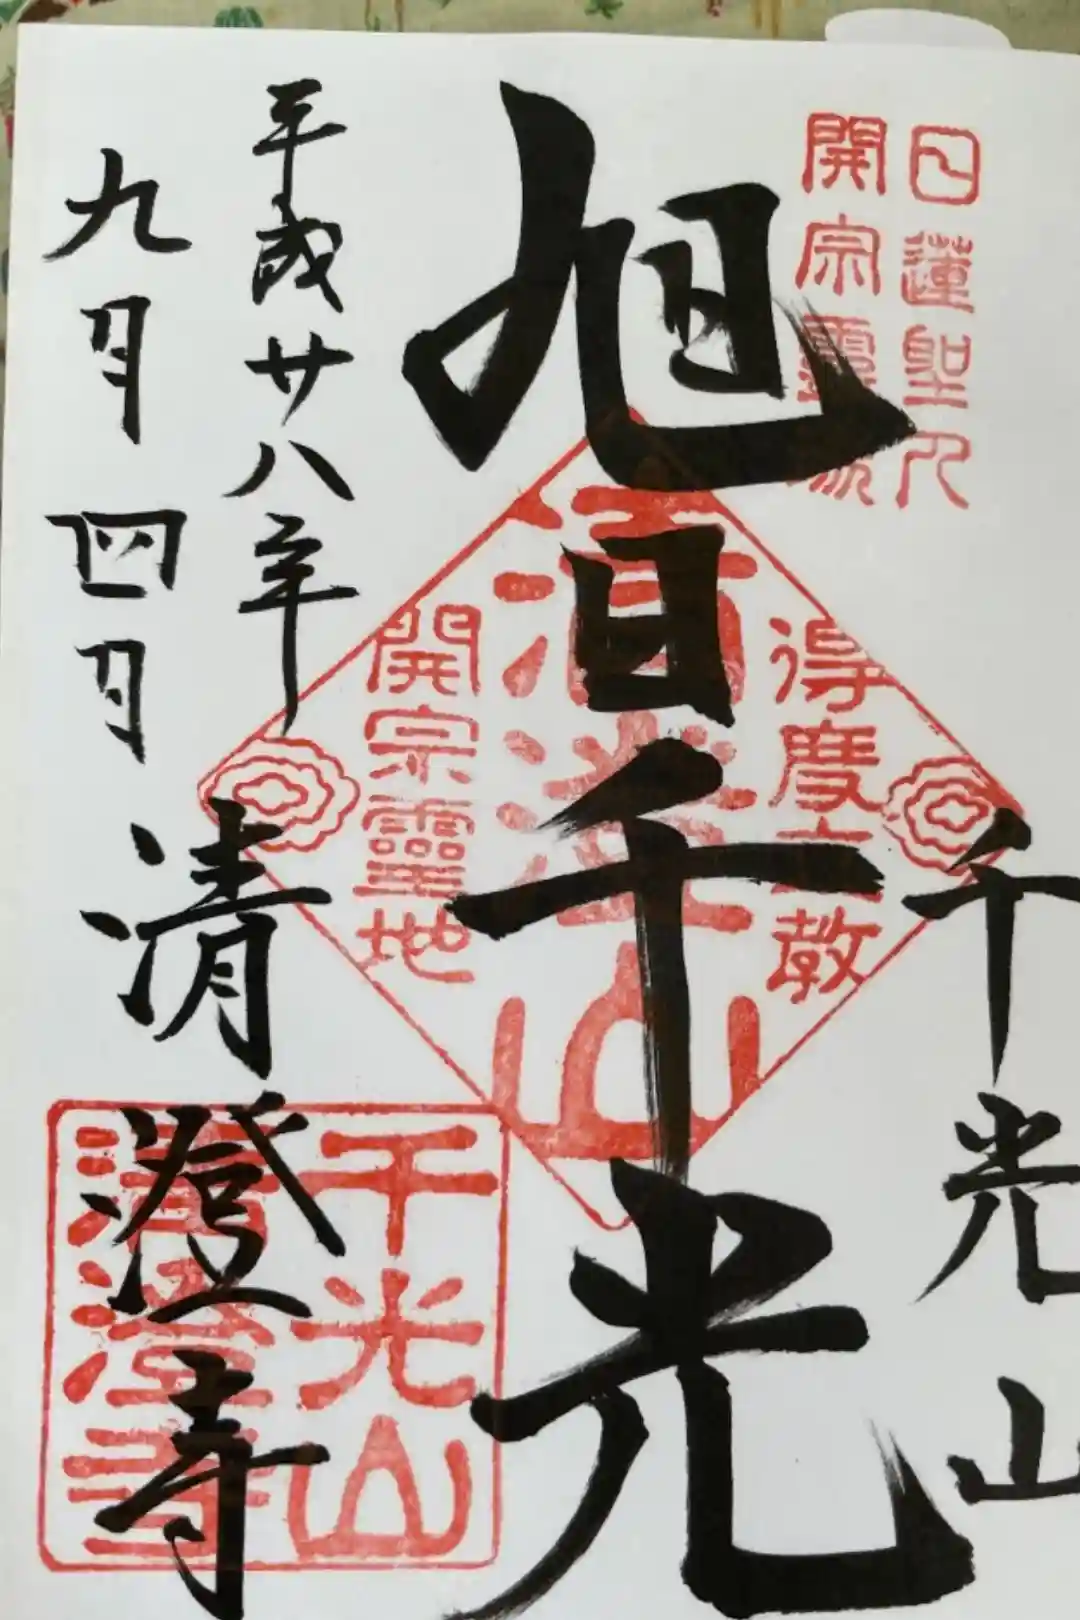 日蓮聖人
開宗靈場
千光山
旭日千光
得度立教
清澄山
開宗靈地
平成廿八年
九月四日
清澄寺
千光山
清澄寺